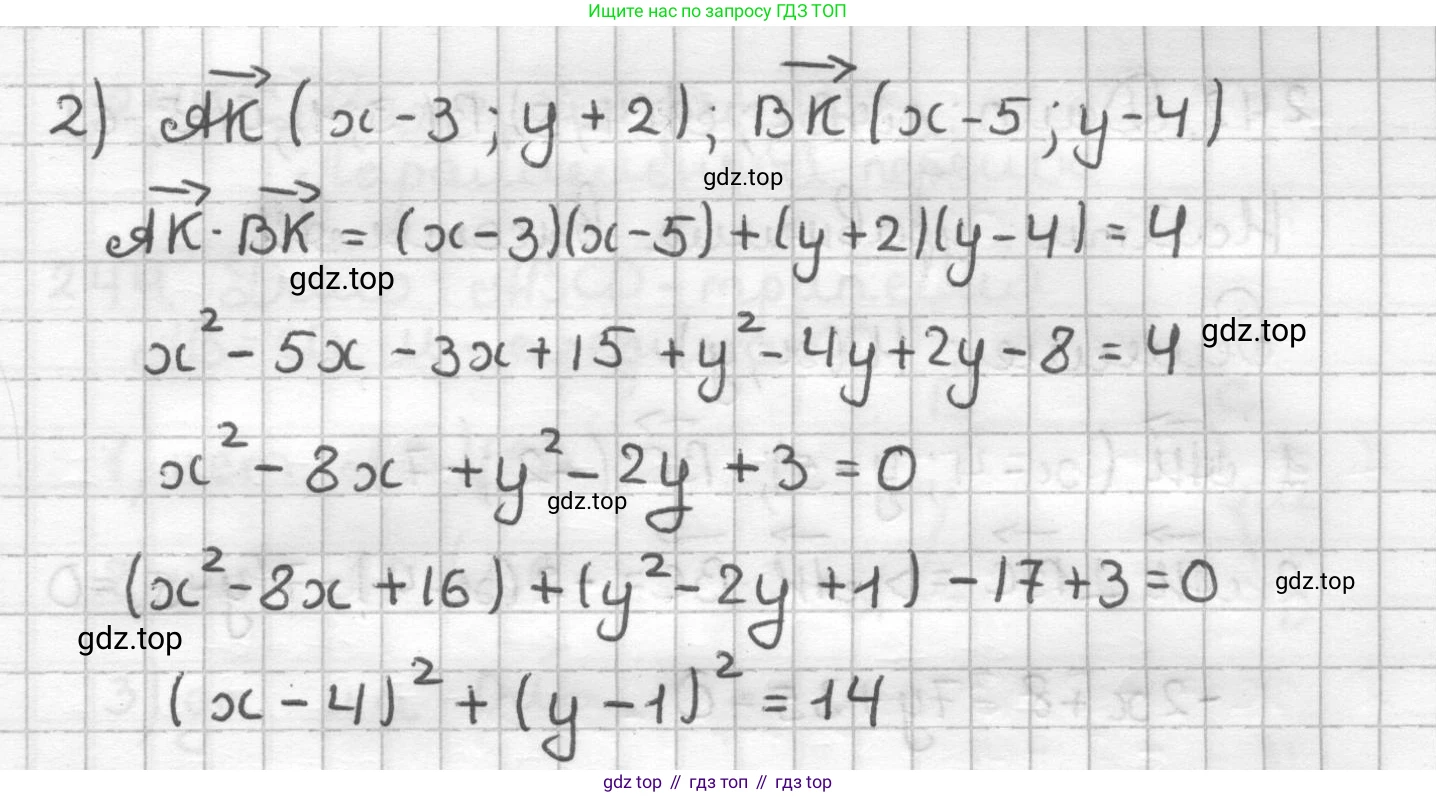 Ищите нас по запросу ГДЗ ТОП
2) AK (x-3; y+2); BK (x-5; y-4)
gdz.top
AK · BK = (x-3)(x-5)+(y+2)(y-4) = 4
gdz.top
x² - 5x - 3x + 15 + y² - 4y + 2y - 8 = 4 gdz.top
x² - 8x + y² - 2y + 3 = 0
gdz.top
(x² - 8x + 16) + (y² - 2y + 1) - 17 + 3 = 0 gdz.top
gdz.top
(x - 4)² + (y - 1)² = 14
gdz top // гдз топ // gdz top